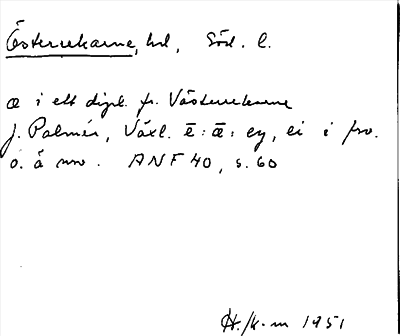 Österrekarne, hd, Söd. l.
æ i ett dipl. fr. Västerrekarne
J. Palmér, Växl. ē : ǣ : ey, ei i fno.
o. å nno. ANF 40, s. 60
H. /k-m 1951